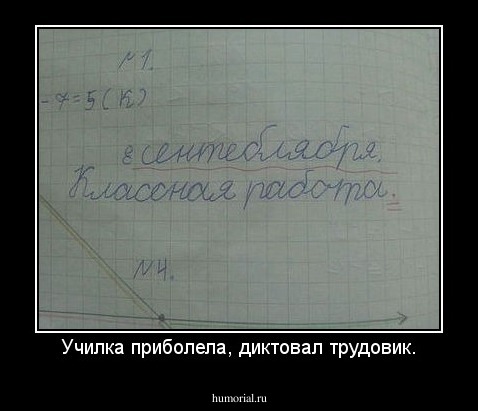 №1.
-7=5(К)
8 сентеблября.
Классная работа.
№4.
Училка приболела, диктовал трудовик.
humorial.ru